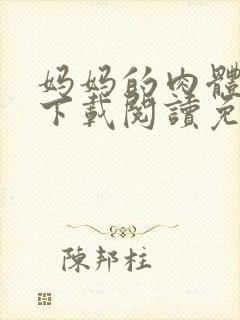 妈妈的肉體
下載閱讀免
陳邦柱